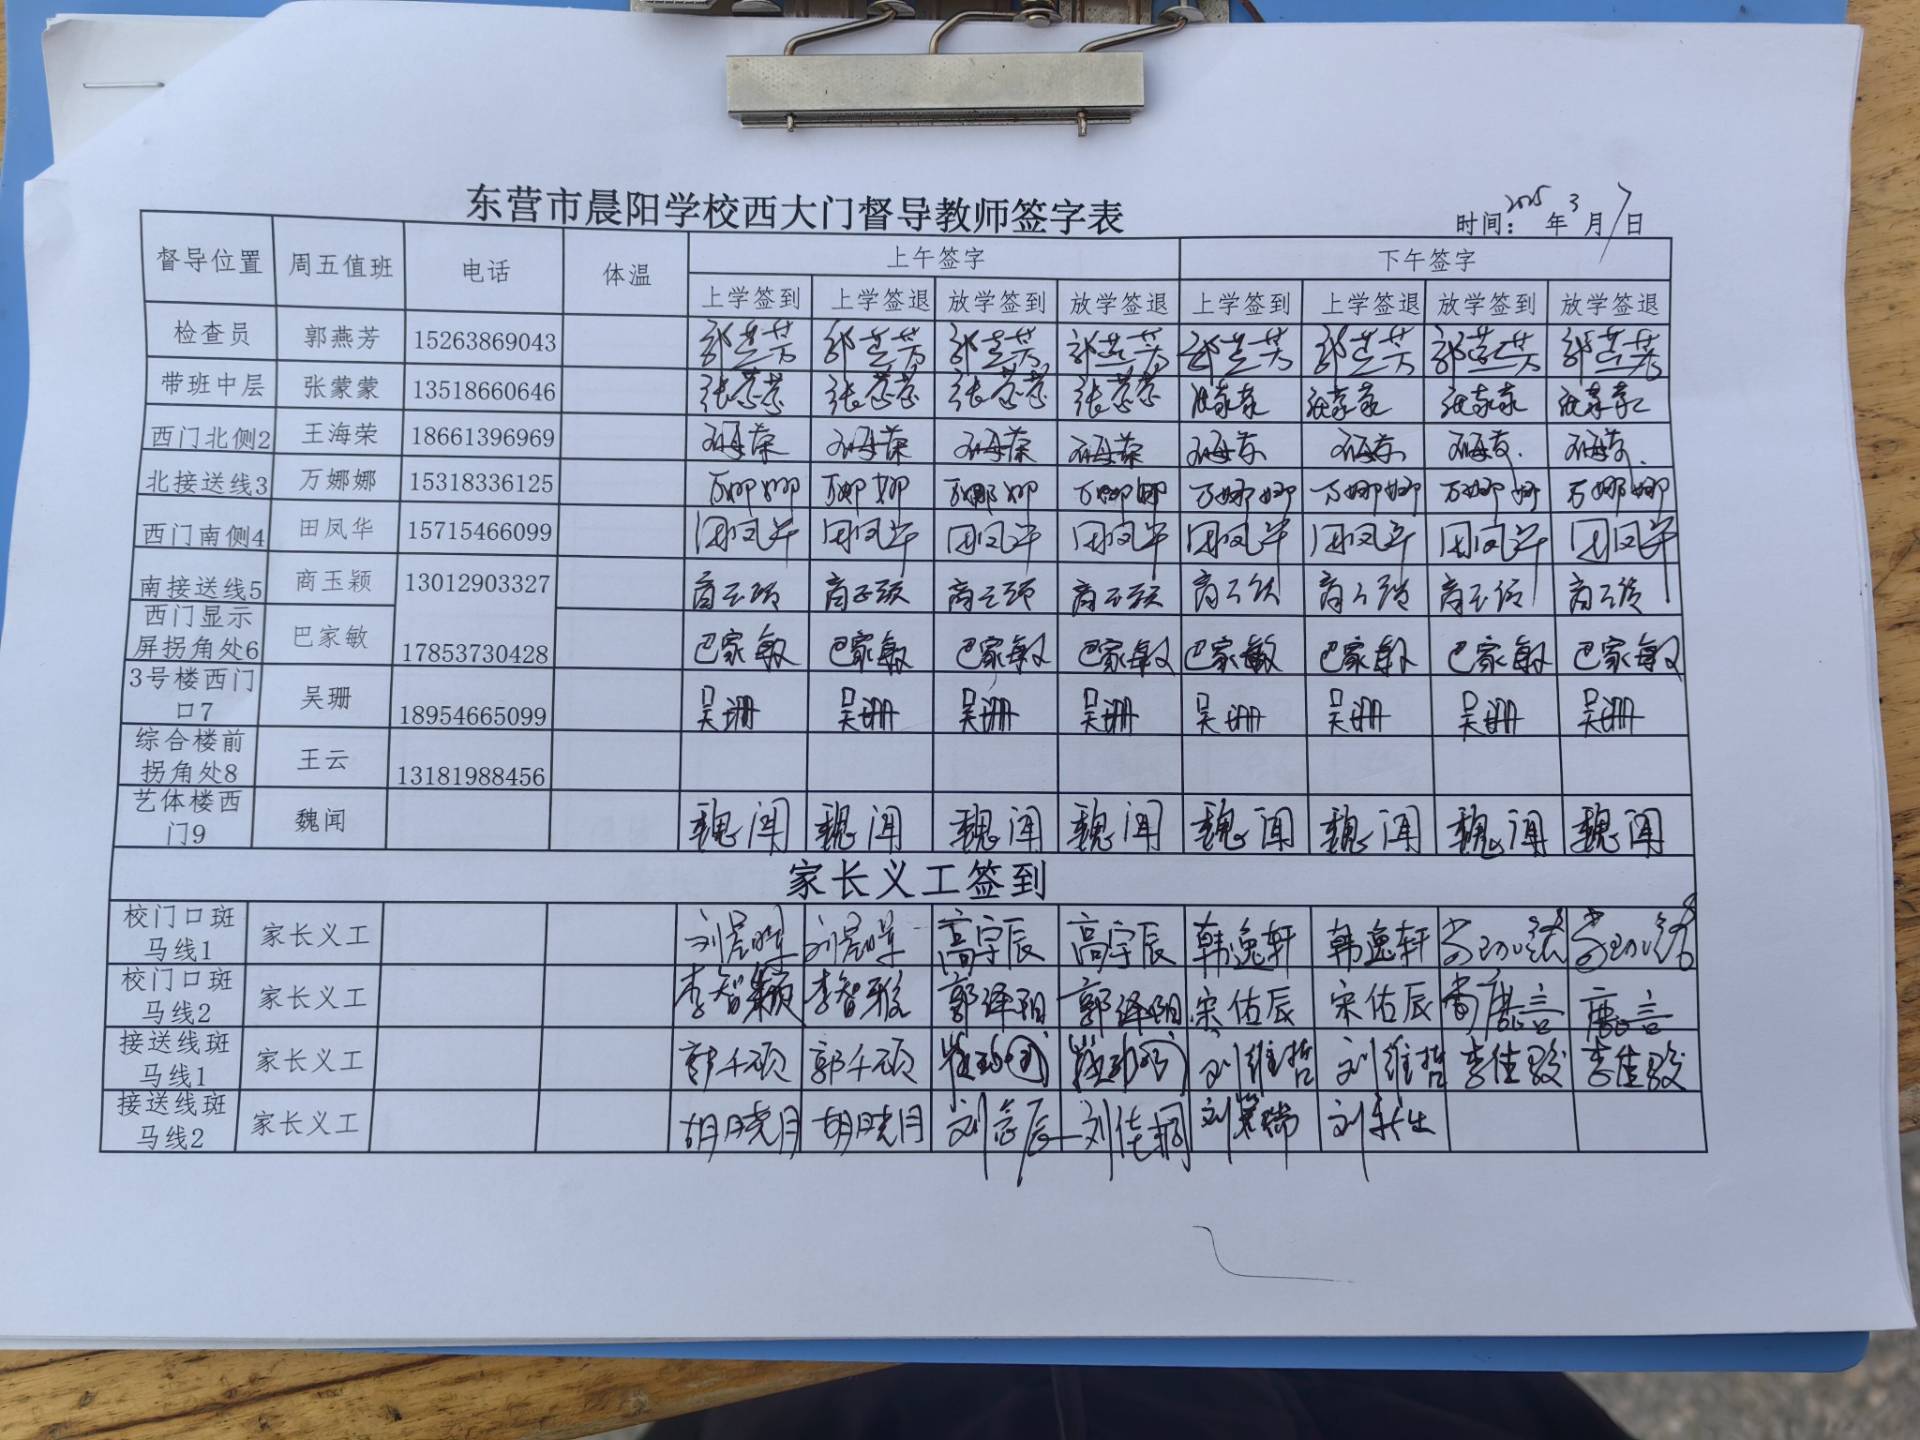 东营市晨阳学校西大门督导教师签字表
时间：2025年3月7日
督导位置 周五值班 电话 体温 上午签字 下午签字
上学签到 上学签退 放学签到 放学签退 上学签到 上学签退 放学签到 放学签退
检查员 郭燕芳 15263869043 郭燕芳 郭燕芳 郭燕芳 郭燕芳 郭燕芳 郭燕芳 郭燕芳 郭燕芳
带班中层 张蒙蒙 13518660646 张蒙蒙 张蒙蒙 张蒙蒙 张蒙蒙 张蒙蒙 张蒙蒙 张蒙蒙 张蒙蒙
西门北侧2 王海荣 18661396969 王海荣 王海荣 王海荣 王海荣 王海荣 王海荣 王海荣 王海荣
北接送线3 万娜娜 15318336125 万娜娜 万娜娜 万娜娜 万娜娜 万娜娜 万娜娜 万娜娜 万娜娜
西门南侧4 田凤华 15715466099 田凤华 田凤华 田凤华 田凤华 田凤华 田凤华 田凤华 田凤华
南接送线5 商玉颖 13012903327 商玉颖 商玉颖 商玉颖 商玉颖 商玉颖 商玉颖 商玉颖 商玉颖
西门显示
屏拐角处6 巴家敏 17853730428 巴家敏 巴家敏 巴家敏 巴家敏 巴家敏 巴家敏 巴家敏 巴家敏
3号楼西门
口7 吴珊 18954665099 吴珊 吴珊 吴珊 吴珊 吴珊 吴珊 吴珊 吴珊
综合楼前
拐角处8 王云 13181988456
艺体楼西
门9 魏闻 魏闻 魏闻 魏闻 魏闻 魏闻 魏闻 魏闻 魏闻
家长义工签到
校门口斑
马线1 家长义工 高宇辰 高宇辰 韩逸轩 韩逸轩
校门口斑
马线2 家长义工 郭泽阳 郭泽阳 宋佑辰 宋佑辰
接送线斑
马线1 家长义工 郭千硕 郭千硕 刘维哲 刘维哲 李佳骏 李佳骏
接送线斑
马线2 家长义工 胡晓月 胡晓月